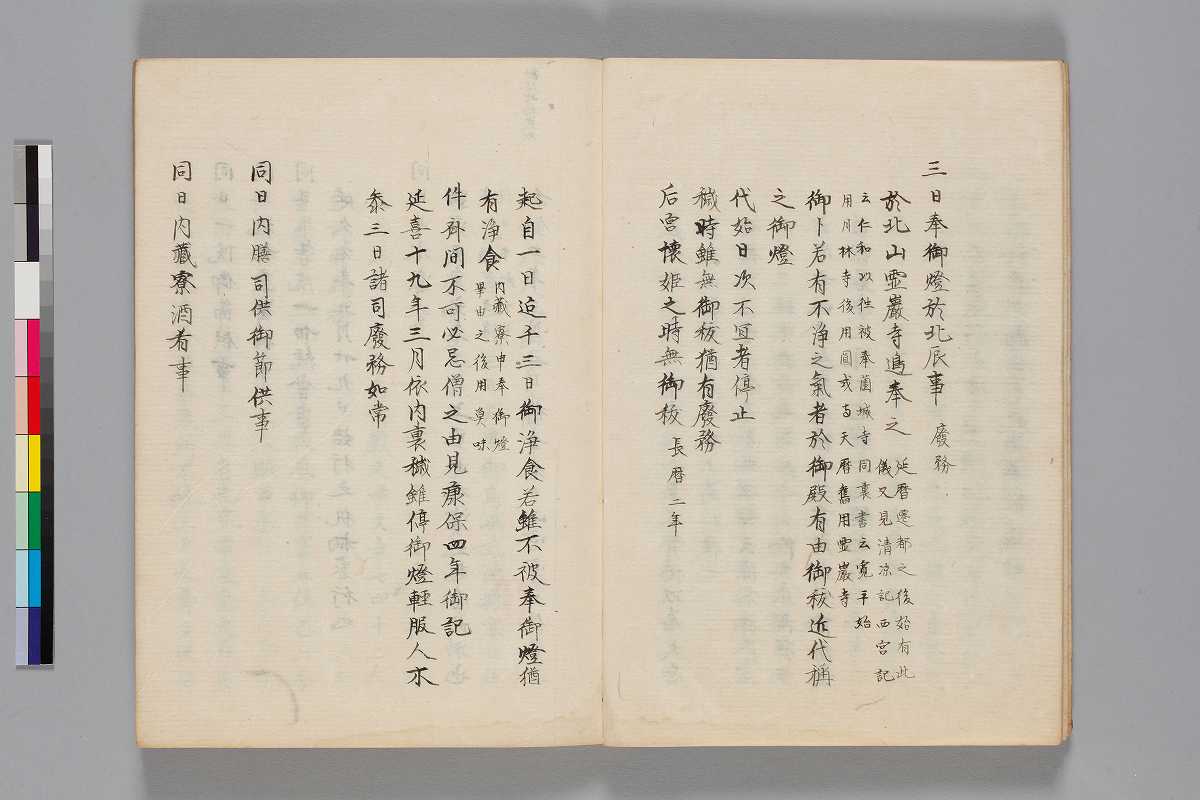 三日奉御燈於北辰事 廢務
於北山霊巖寺邊奉之 延暦遷都之後始有此
儀又見清凉記西宮記
云仁和以往被奉薗城寺同裏書云寛平始
用月林寺後用圓成寺天暦舊用霊巖寺
御卜若有不浄之氣者於御殿有由御秡近代稱
之御燈
代始日次不冝者停止
穢時雖無御秡猶有廢務
后宮懐姙之時無御秡 長暦二年
起自一日迄于三日御浄食若雖不被奉御燈猶
有浄食 内蔵寮申奉御燈
畢由之後用魚味
件齊間不可必忌僧之由見康保四年御記
延喜十九年三月依内裏穢雖停御燈輕服人不
参三日諸司廢務如常
同日内膳司供御節供事
同日内藏寮酒肴事